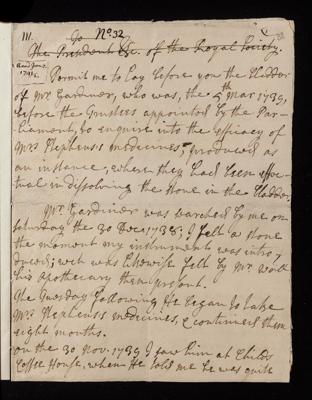 III. Go No. 32
The President &c. of the Royal Society.
Read June
1741/2.
Permit me to lay before you the bladder
of Mr. Gardiner, who was, the 5th Mar 1739,
before the Trustees appointed by the Par-
liament, to enquire into the efficacy of
Mrs Stephens's medicines, produced as
an instance, where they had been effec-
tual in dissolving the stone in the bladder.
Mr. Gardiner was searched by me on
Saturday the 30 Dec 1738; I felt a stone
the moment my instrument was intro-
duced; wch was likewise felt by Mr. North
his apothecary then present.
The Tuesday following He began to take
Mrs Stephens's medicines, & continued them
eight months.
on the 30 Nov. 1739 I saw him at Childs
Coffee House, when He told me he was quite